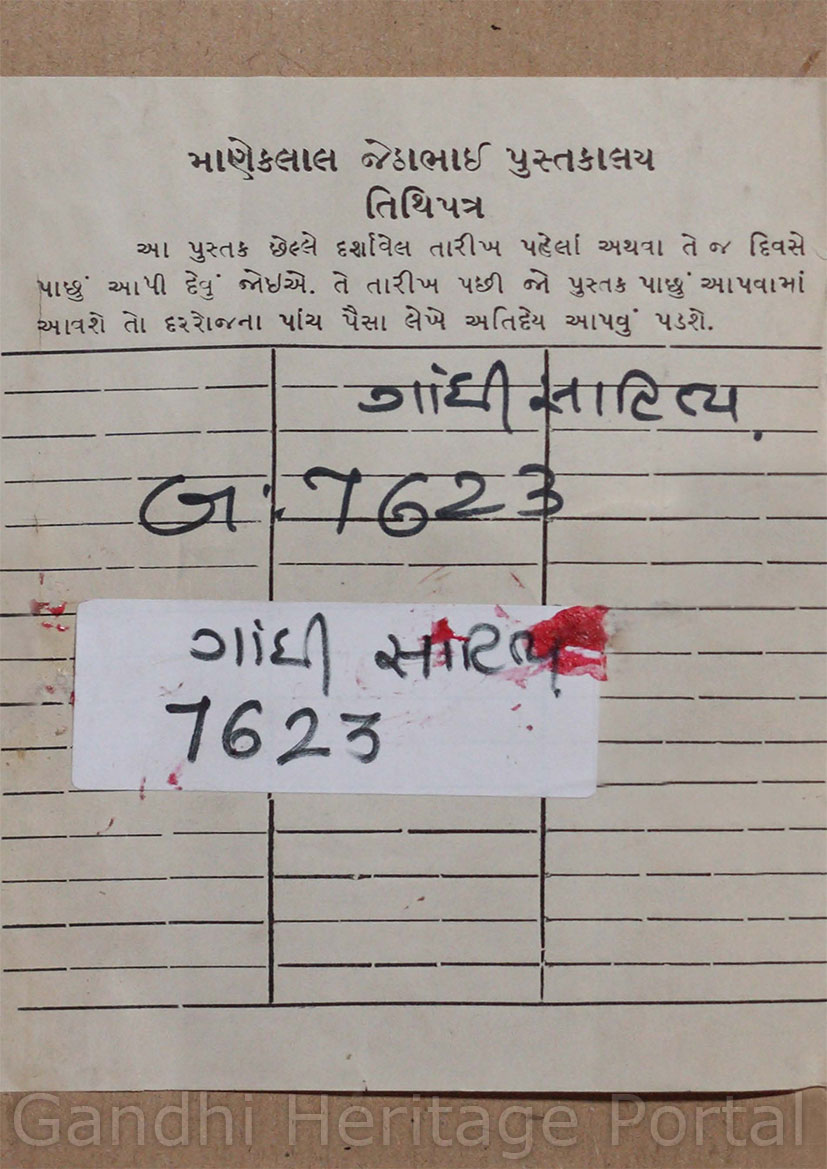 માણેકલાલ જેઠાભાઈ પુસ્તકાલય
તિથિપત્ર
આ પુસ્તક છેલ્લે દર્શાવેલ તારીખ પહેલાં અથવા તે જ દિવસે
પાછું આપી દેવું જોઈએ. તે તારીખ પછી જો પુસ્તક પાછું આપવામાં
આવશે તો દરરોજના પાંચ પૈસા લેખે અતિદેય આપવું પડશે.
ગાંધી સાહિત્ય.
બ:7623
ગાંધી સાહિત્ય
7623
Gandhi Heritage Portal